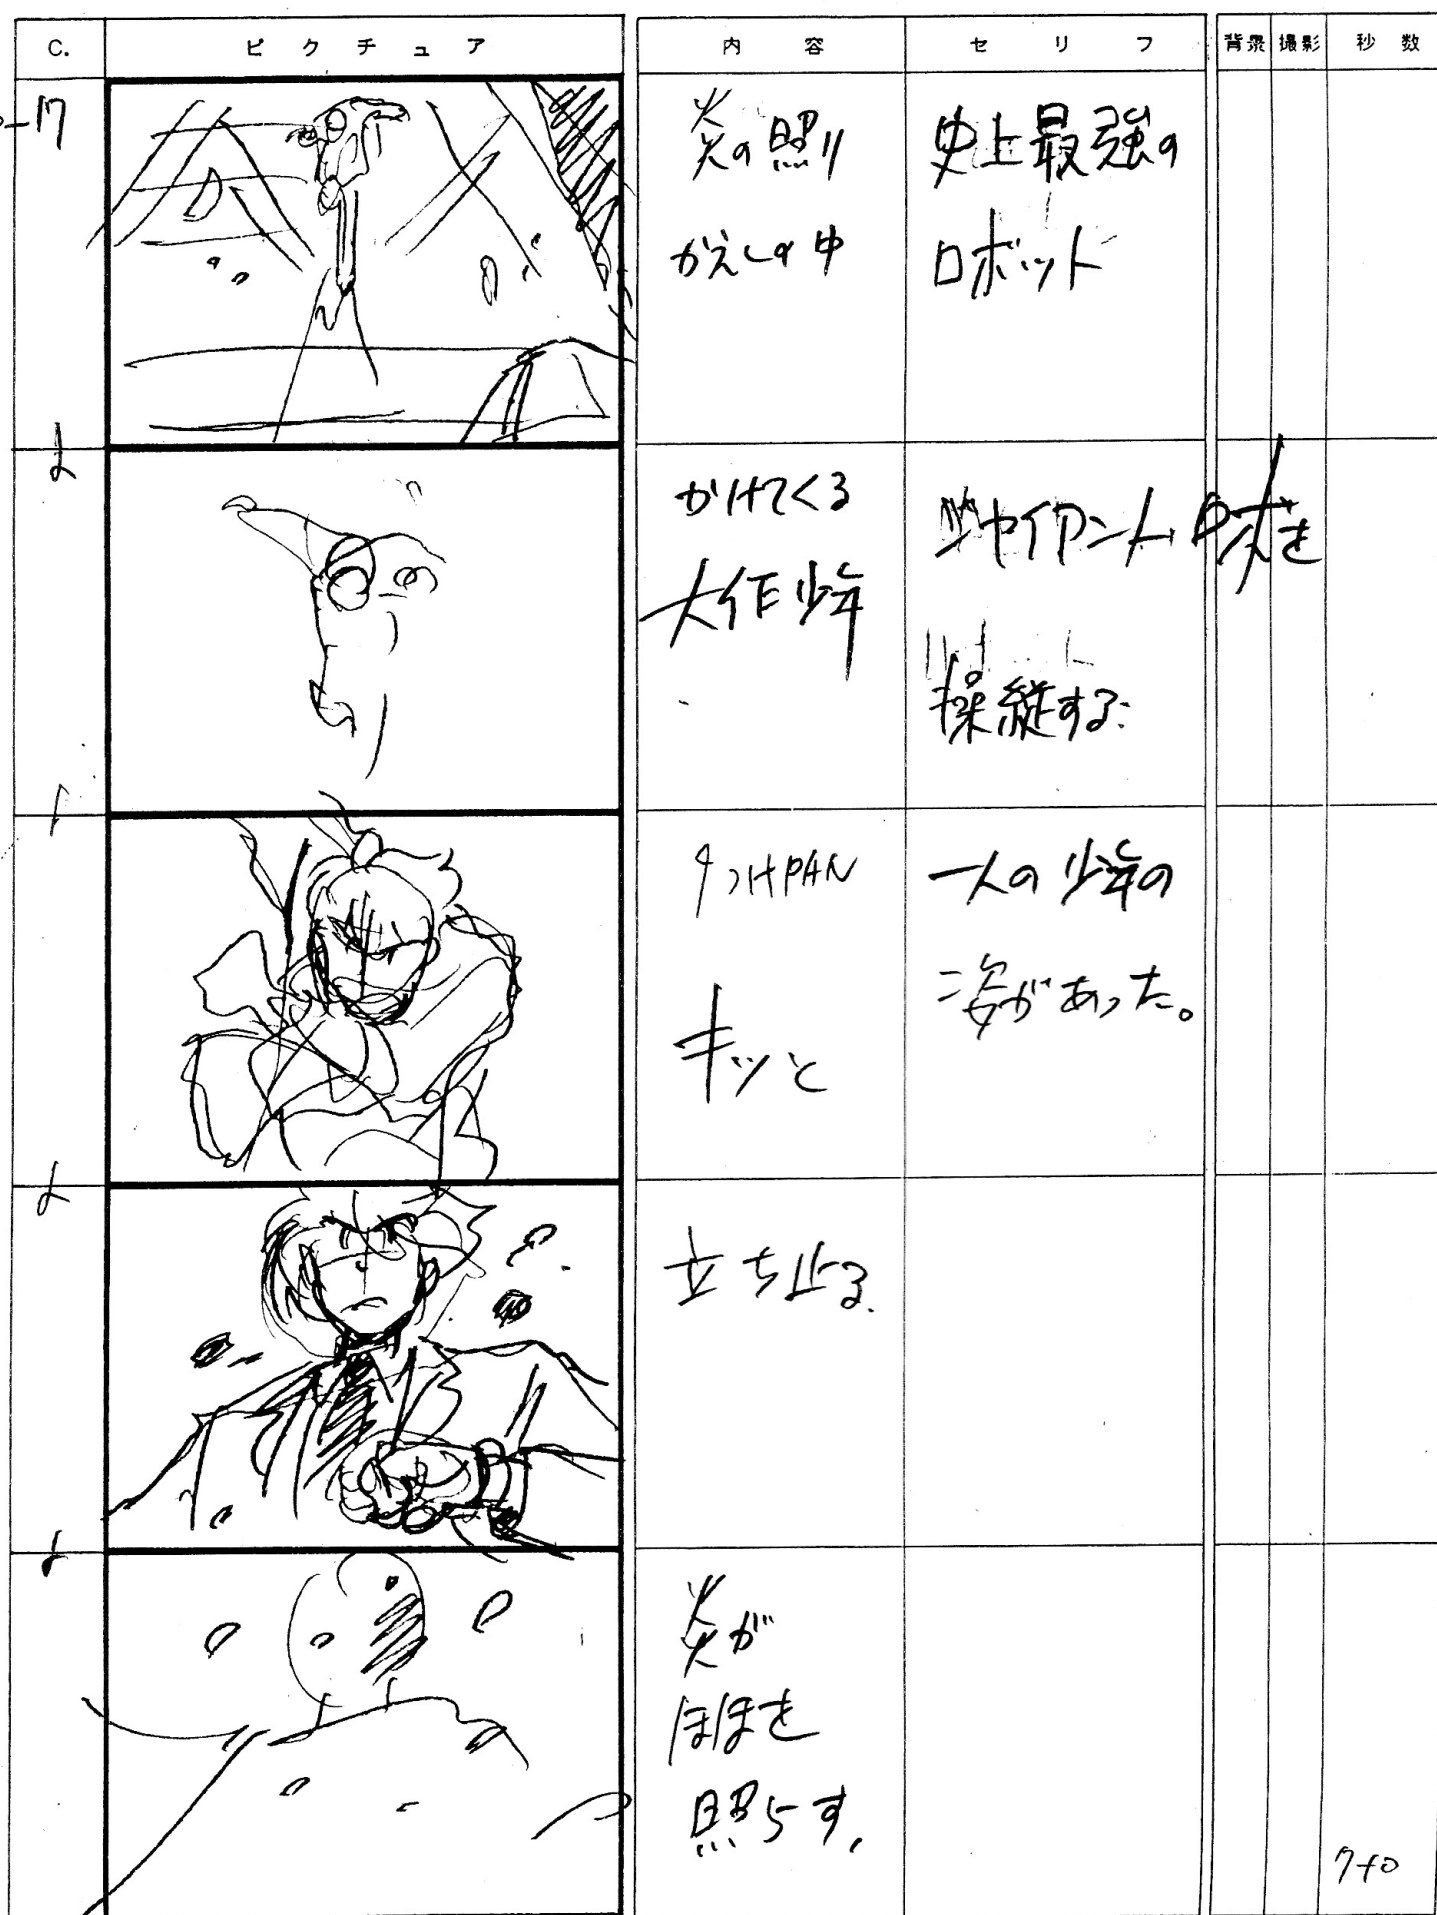 C.
ピクチュア
内容
セリフ
背景
撮影
秒数
17
炎の照り
かえしの中
史上最強の
ロボット
かけてくる
大作少年
ジャイアントロボを
操縦する
つけPAN
キッと
一人の少年の
姿があった。
立ち止る.
炎が
ほほを
照らす、
7+0